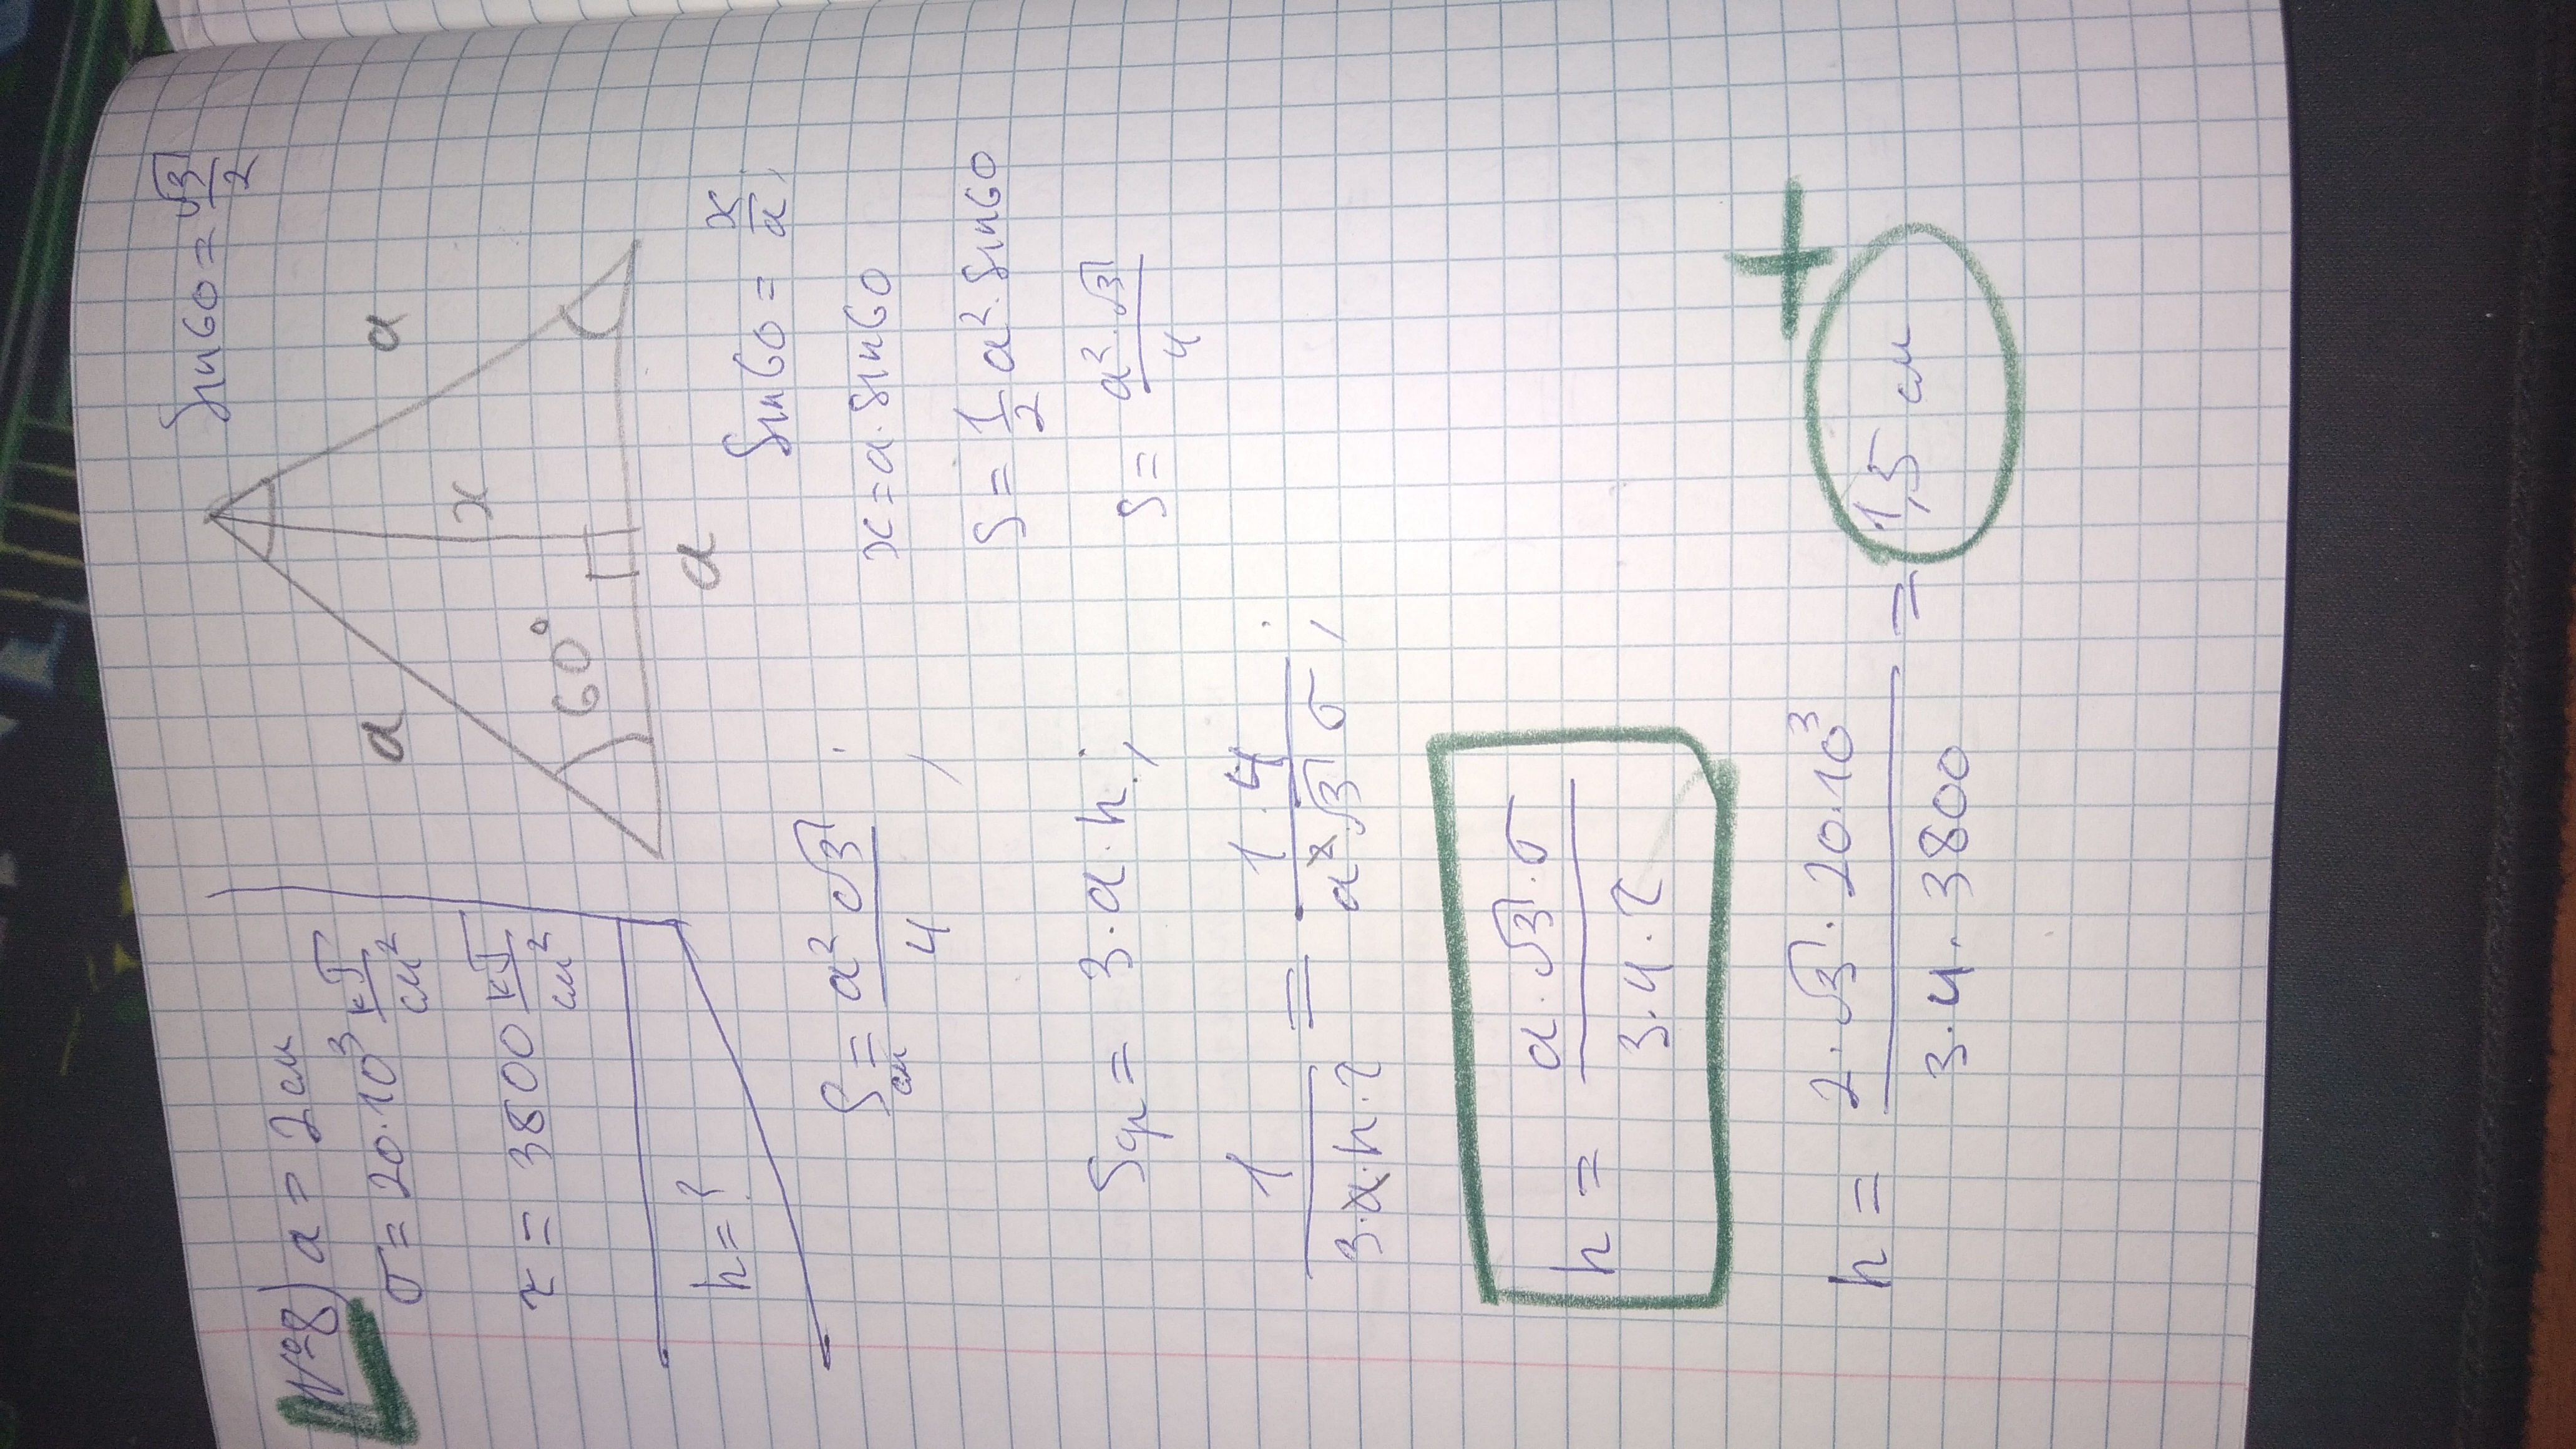 №8) a = 2 см
σ = 20·10³ кГ/см²
τ = 3800 кГ/см²
h = ?
sin60 = √3/2
a
a
x
60°
a
sin60 = x/a;
x = a·sin60
S = 1/2 a²·sin60
S = a²·√3/4
Sсм = a²√3/4;
Sср = 3·a·h;
1/(3·a·h·τ) = 1·4/(a²√3 σ);
h = a·√3·σ/(3·4·τ)
h = 2·√3·20·10³/(3·4·3800) = 1,5 см
+